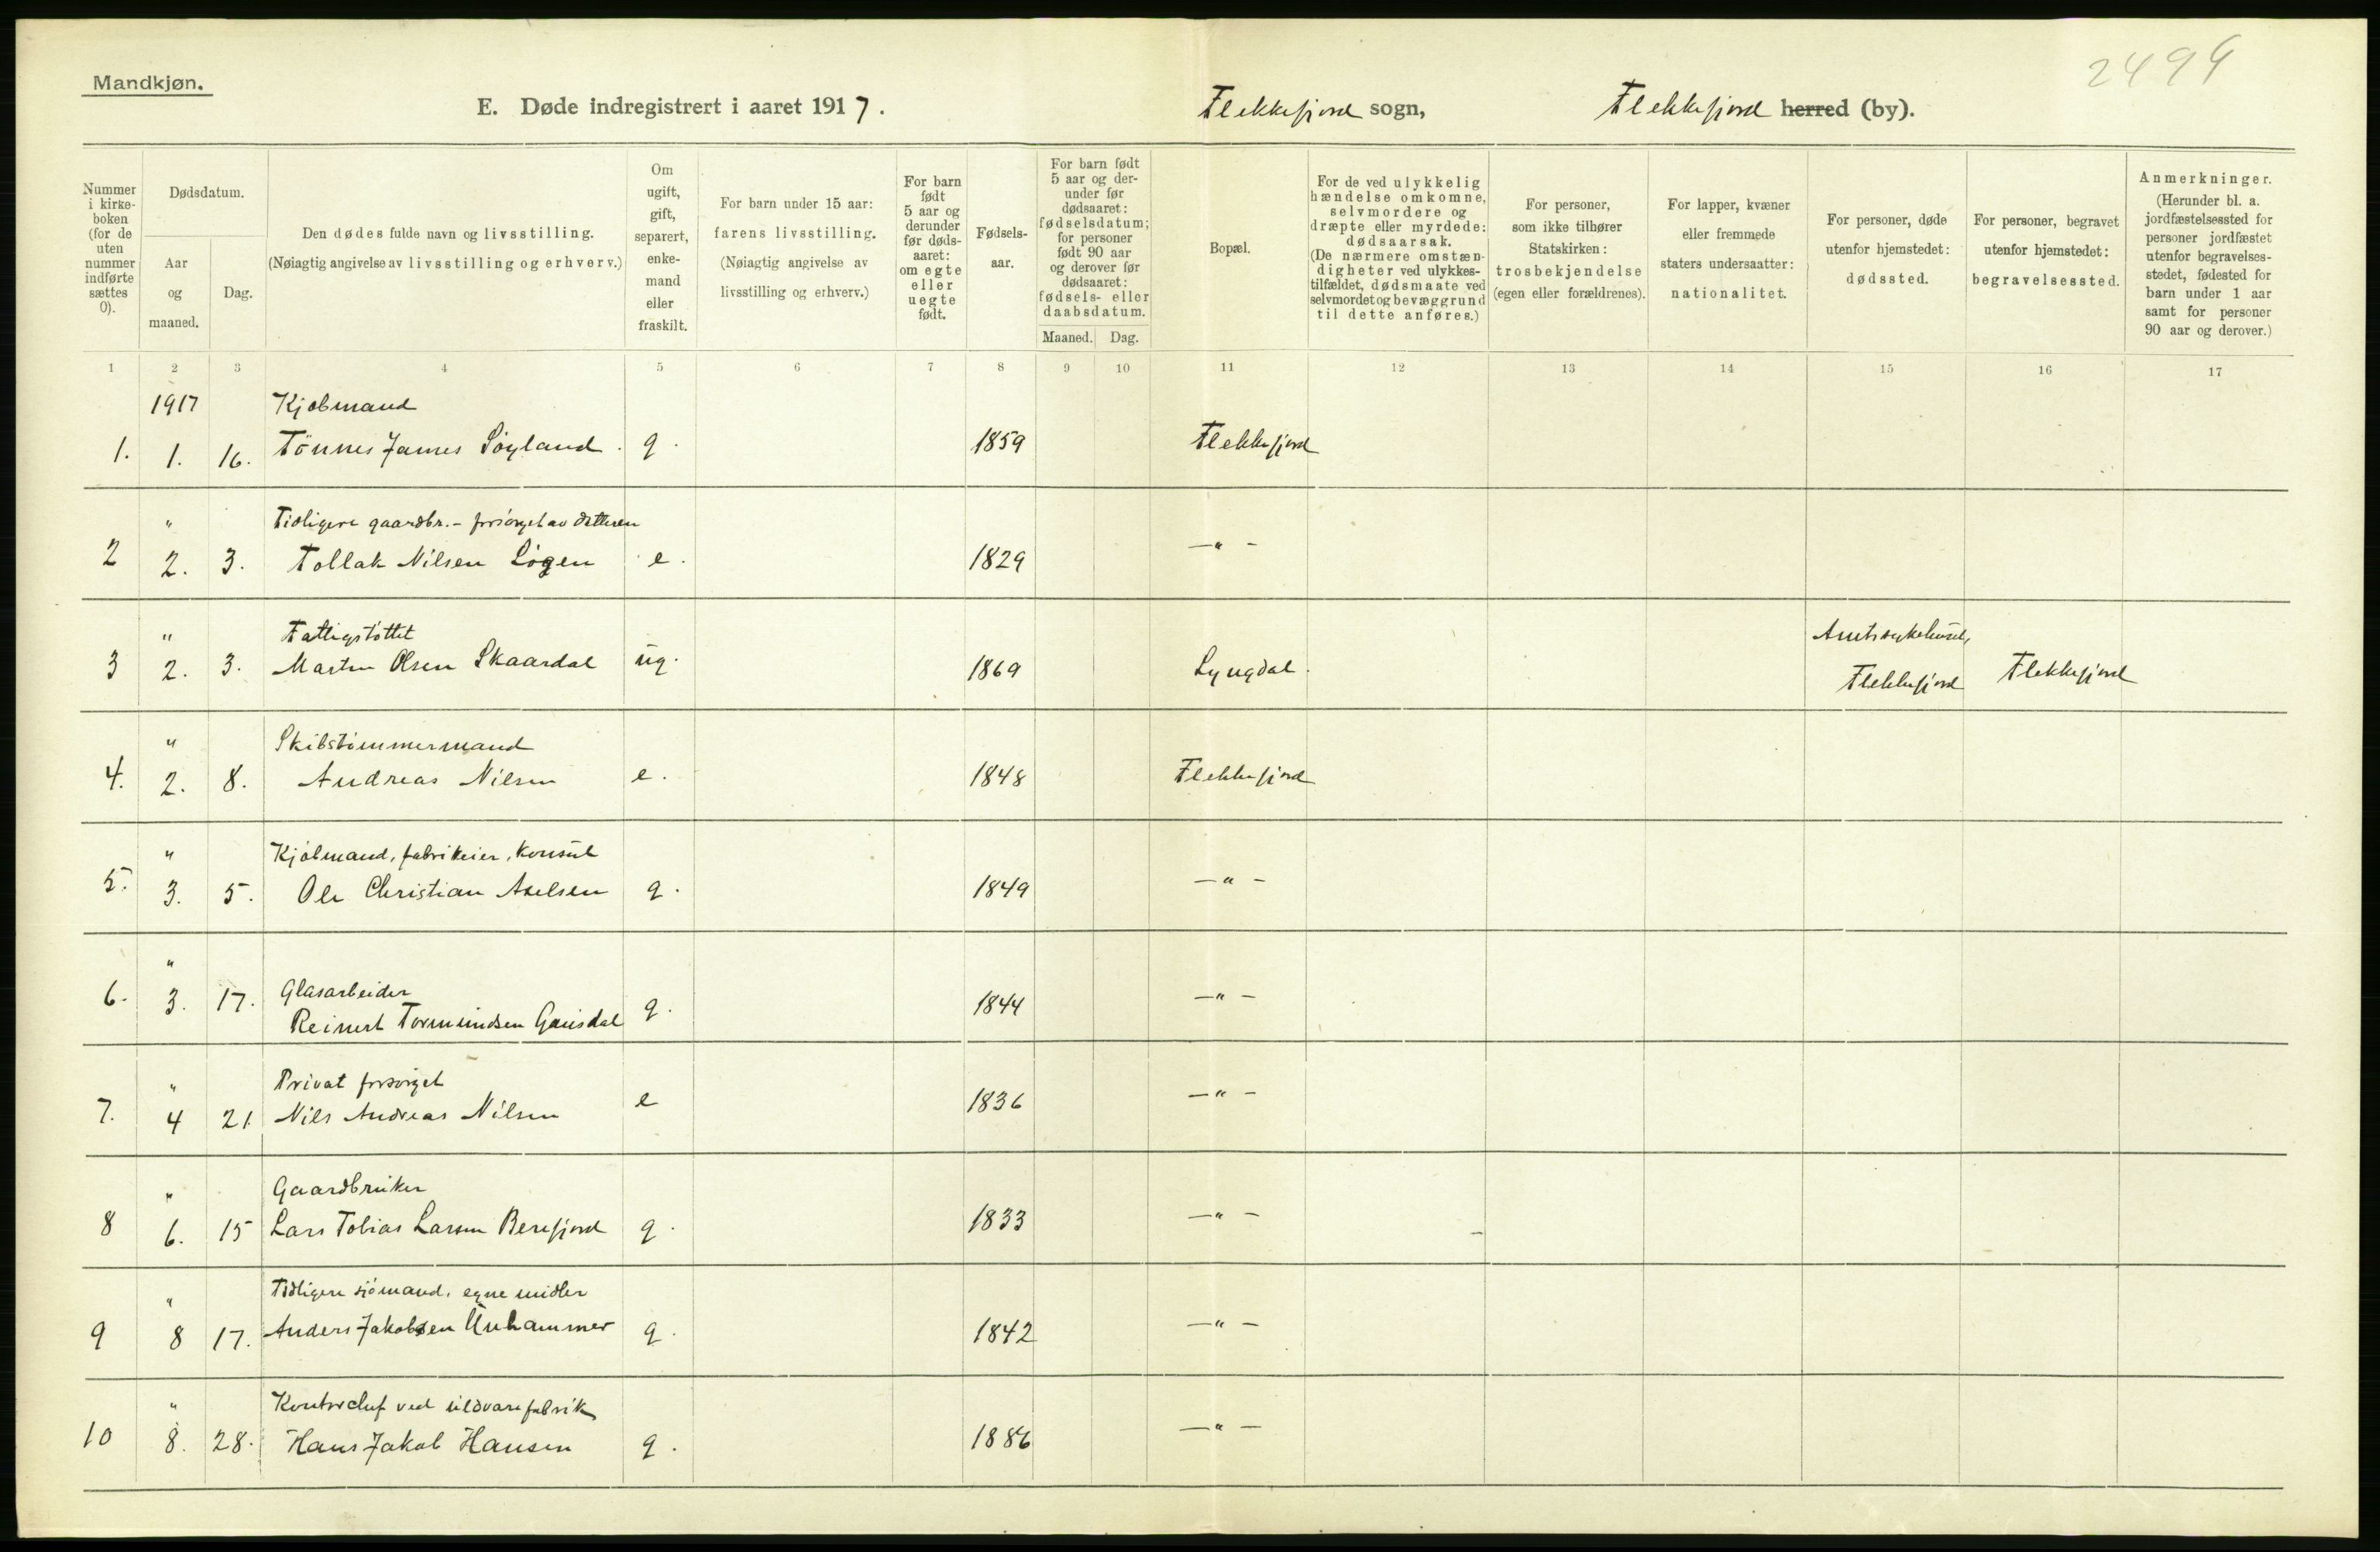 2499
Mandkjøn.
E. Døde indregistrert i aaret 1917.
Flekkefjord sogn,
Flekkefjord herred (by).
Nummer i kirke-boken (for de uten nummer indførte sættes 0).
Dødsdatum.
Aar og maaned.
Dag.
Den dødes fulde navn og livsstilling.
(Nøiagtig angivelse av livsstilling og erhverv.)
Om ugift, gift, separert, enke-mand eller fraskilt.
For barn under 15 aar:
farens livsstilling.
(Nøiagtig angivelse av livsstilling og erhverv.)
For barn født 5 aar og derunder før døds-aaret: om egte eller uegte født.
Fødsels-aar.
For barn født 5 aar og der-under før dødsaaret: fødselsdatum; for personer født 90 aar og derover før dødsaaret: fødsels- eller daabsdatum.
Maaned. Dag.
Bopæl.
For de ved ulykkelig hændelse omkomne, selvmordere og dræpte eller myrdede: dødsaarsak.
(De nærmere omstæn-digheter ved ulykkes-tilfældet, dødsmaate ved selvmordet og bevæggrund til dette anføres.)
For personer, som ikke tilhører Statskirken: trosbekjendelse (egen eller forældrenes).
For lapper, kvæner eller fremmede staters undersaatter: nationalitet.
For personer, døde utenfor hjemstedet: dødssted.
For personer, begravet utenfor hjemstedet: begravelsessted.
Anmerkninger.
(Herunder bl. a. jordfæstelsessted for personer jordfæstet utenfor begravelses-stedet, fødested for barn under 1 aar samt for personer 90 aar og derover.)
1 2 3 4 5 6 7 8 9 10 11 12 13 14 15 16 17
1917 Kjøbmand
1. 1. 16. Tönnes James Söyland. g. 1859 Flekkefjord
" Tidligere gaardbr. - forsörget av datteren
2 2. 3. Tollak Nilsen Lögen e. 1829 —"—
" Fattigstöttet Amtssykehuset,
3 2. 3. Martin Olsen Skaardal ug. 1869 Lyngdal. Flekkefjord Flekkefjord
" Skibstömmermand
4. 2. 8. Andreas Nilsen e. 1848 Flekkefjord
" Kjöbmand, fabrikeier, konsul
5. 3. 5. Ole Christian Axelsen g. 1849 —"—
" Glasarbeider
6. 3. 17. Reinert Tormundsen Gausdal g. 1844 —"—
" Privat forsörget
7. 4 21. Nils Andreas Nilsen e 1836 —"—
" Gaardbruker
8 6. 15 Lars Tobias Larsen Berefjord g. 1833 —"—
" Tidligere sjömand, egne midler
9 8 17. Anders Jakobsen Unhammer g. 1842 —"—
" Kontorchef ved uldvarefabrik
10 8. 28. Hans Jakob Hansen g. 1886 —"—